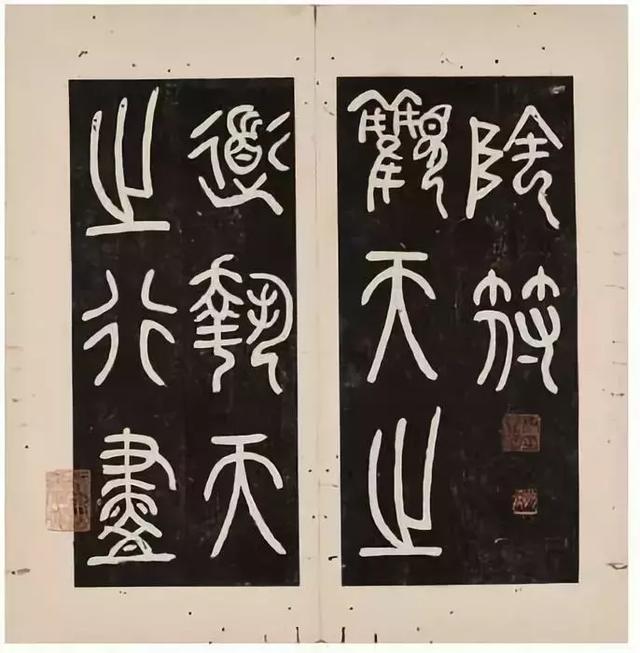 陰符
觀天之
道執天
之行盡